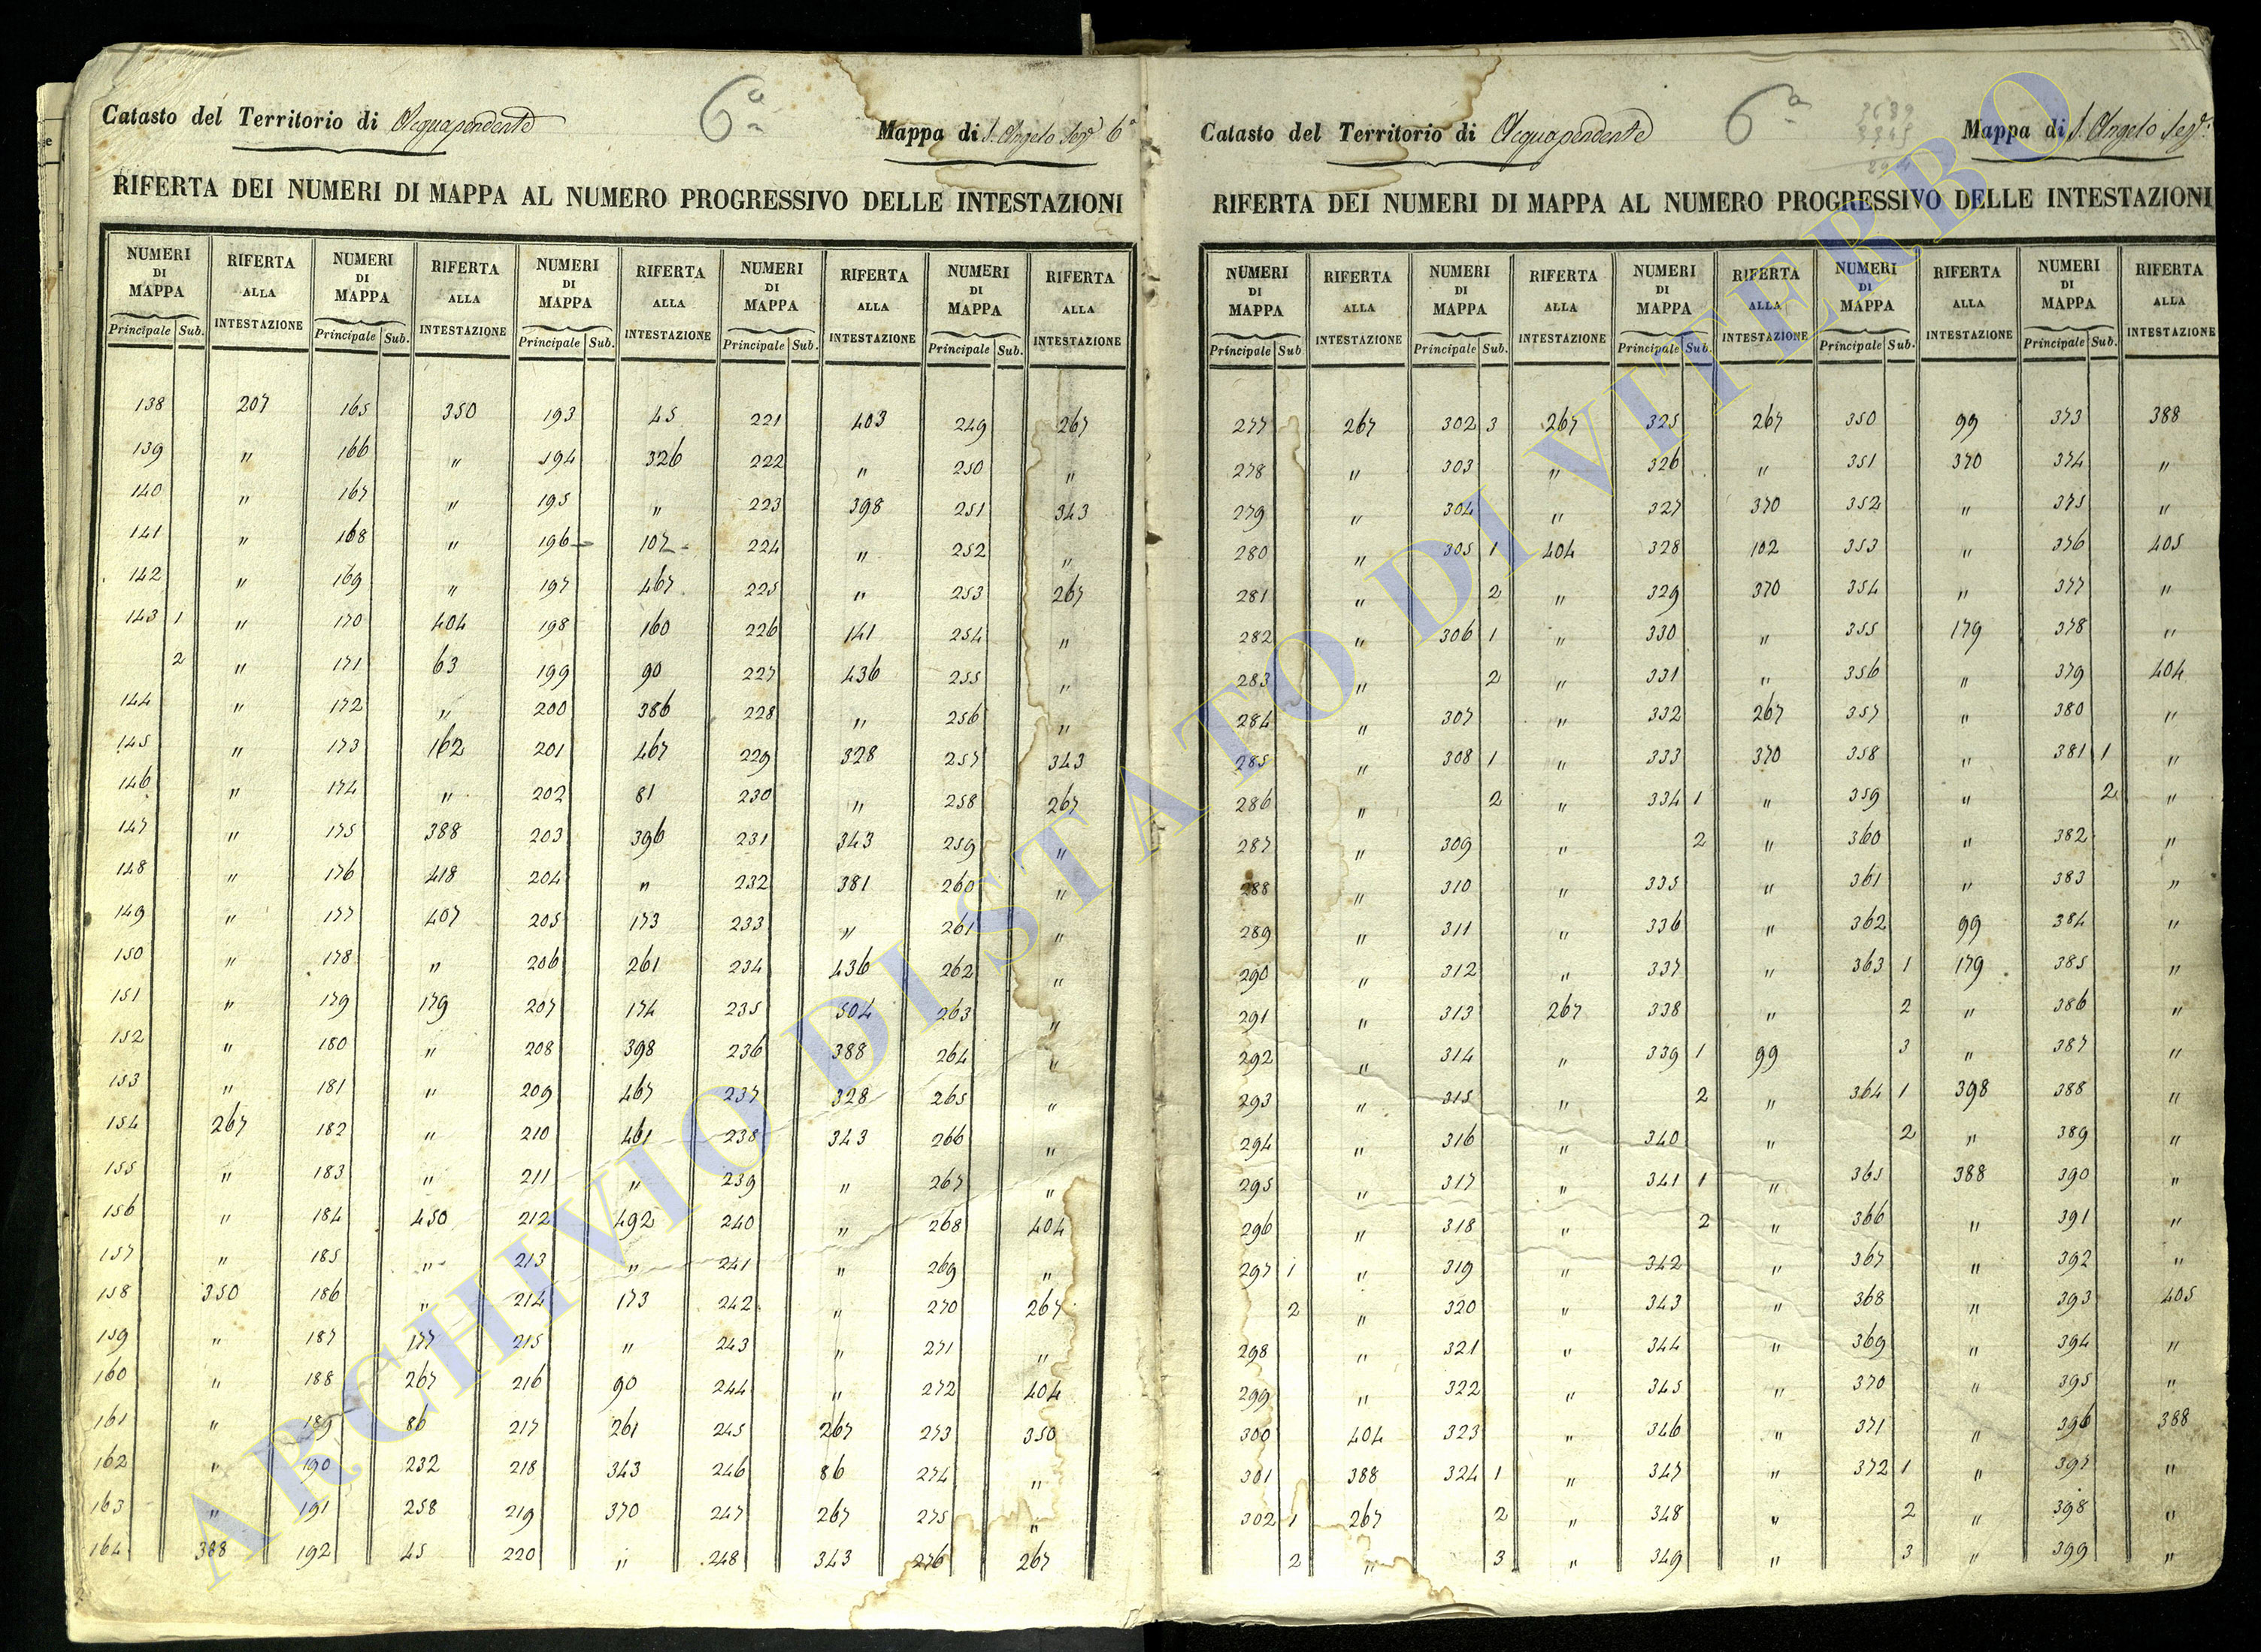 Catasto del Territorio di Acquapendente
6ª
Mappa di S. Angelo Sezᵉ 6ª
RIFERTA DEI NUMERI DI MAPPA AL NUMERO PROGRESSIVO DELLE INTESTAZIONI
NUMERI DI MAPPA RIFERTA ALLA INTESTAZIONE NUMERI DI MAPPA RIFERTA ALLA INTESTAZIONE NUMERI DI MAPPA RIFERTA ALLA INTESTAZIONE NUMERI DI MAPPA RIFERTA ALLA INTESTAZIONE NUMERI DI MAPPA RIFERTA ALLA INTESTAZIONE
Principale Sub. Principale Sub. Principale Sub. Principale Sub. Principale Sub.
138 207 165 350 193 45 221 403 249 267
139 " 166 " 194 326 222 " 250 "
140 " 167 " 195 " 223 398 251 343
141 " 168 " 196 107 224 " 252 "
142 " 169 " 197 467 225 " 253 267
143 1 " 170 404 198 160 226 141 254 "
2 " 171 63 199 90 227 436 255 "
144 " 172 " 200 386 228 " 256 "
145 " 173 162 201 467 229 328 257 343
146 " 174 " 202 81 230 " 258 267
147 " 175 388 203 396 231 343 259 "
148 " 176 418 204 " 232 381 260 "
149 " 177 407 205 173 233 " 261 "
150 " 178 " 206 261 234 436 262 "
151 " 179 179 207 174 235 504 263 "
152 " 180 " 208 398 236 388 264 "
153 " 181 " 209 467 237 328 265 "
154 267 182 " 210 461 238 343 266 "
155 " 183 " 211 " 239 " 267 "
156 " 184 450 212 492 240 " 268 404
157 " 185 " 213 " 241 " 269 "
158 350 186 " 214 173 242 " 270 267
159 " 187 177 215 " 243 " 271 "
160 " 188 267 216 90 244 " 272 404
161 " 189 86 217 261 245 267 273 350
162 " 190 232 218 343 246 86 274 "
163 " 191 258 219 370 247 267 275 "
164 388 192 45 220 " 248 343 276 267
Catasto del Territorio di Acquapendente
6ª
Mappa di S. Angelo Sezᵉ
RIFERTA DEI NUMERI DI MAPPA AL NUMERO PROGRESSIVO DELLE INTESTAZIONI
NUMERI DI MAPPA RIFERTA ALLA INTESTAZIONE NUMERI DI MAPPA RIFERTA ALLA INTESTAZIONE NUMERI DI MAPPA RIFERTA ALLA INTESTAZIONE NUMERI DI MAPPA RIFERTA ALLA INTESTAZIONE NUMERI DI MAPPA RIFERTA ALLA INTESTAZIONE
Principale Sub Principale Sub. Principale Sub. Principale Sub. Principale Sub.
277 267 302 3 267 325 267 350 99 373 388
278 " 303 " 326 " 351 370 374 "
279 " 304 " 327 370 352 " 375 "
280 " 305 1 404 328 102 353 " 376 405
281 " 2 " 329 370 354 " 377 "
282 " 306 1 " 330 " 355 179 378 "
283 " 2 " 331 " 356 " 379 404
284 " 307 " 332 267 357 " 380 "
285 " 308 1 " 333 370 358 " 381 1 "
286 " 2 " 334 1 " 359 " 2 "
287 " 309 " 2 " 360 " 382 "
288 " 310 " 335 " 361 " 383 "
289 " 311 " 336 " 362 99 384 "
290 " 312 " 337 " 363 1 179 385 "
291 " 313 267 338 " 2 " 386 "
292 " 314 " 339 1 99 3 " 387 "
293 " 315 " 2 " 364 1 398 388 "
294 " 316 " 340 " 2 " 389 "
295 " 317 " 341 1 " 365 388 390 "
296 " 318 " 2 " 366 " 391 "
297 1 " 319 " 342 " 367 " 392 "
2 " 320 " 343 " 368 " 393 405
298 " 321 " 344 " 369 " 394 "
299 " 322 " 345 " 370 " 395 "
300 404 323 " 346 " 371 " 396 388
301 388 324 1 " 347 " 372 1 " 397 "
302 1 267 2 " 348 " 2 " 398 "
2 " 3 " 349 " 3 " 399 "
ARCHIVIO DI STATO DI VITERBO